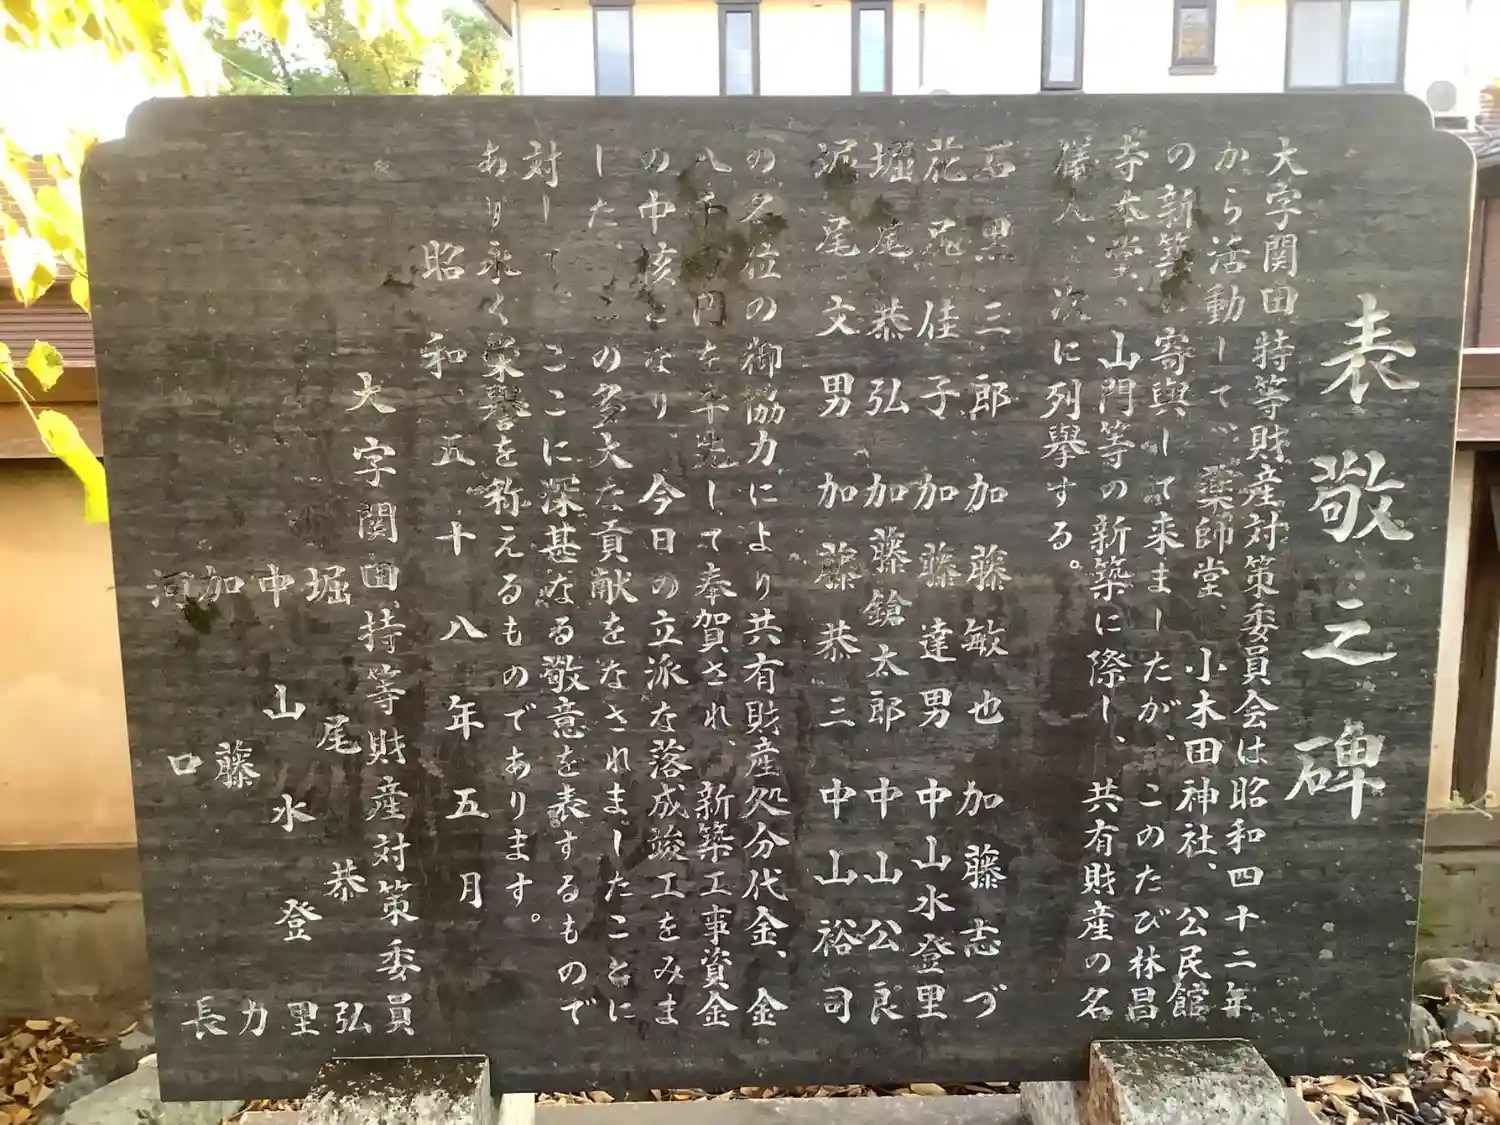 表敬之碑
大字関田特等財産対策委員会は昭和四十二年
から活動して、薬師堂、小木田神社、公民館
の新築、寄與して来ましたが、このたび林昌
寺本堂、山門等の新築に際し、共有財産の名
儀人、次に列擧する。
石黒三郎 加藤敏也 加藤志づ
花尾佳子 加藤達男 中山水登里
堀尾恭弘 加藤鎗太郎 中山公良
堀尾文男 加藤恭三 中山裕司
の各位の御協力により共有財産処分代金、金
八千万円を率先して奉賀され、新築工事資金
の中核となり、今日の立派な落成竣工をみま
した、この多大な貢献をなされましたことに
対して、ここに深甚なる敬意を表するもので
あり永く栄譽を称えるものであります。
昭和五十八年五月
大字関田特等財産対策委員
堀尾恭弘
中山水登里
加藤力
河口長